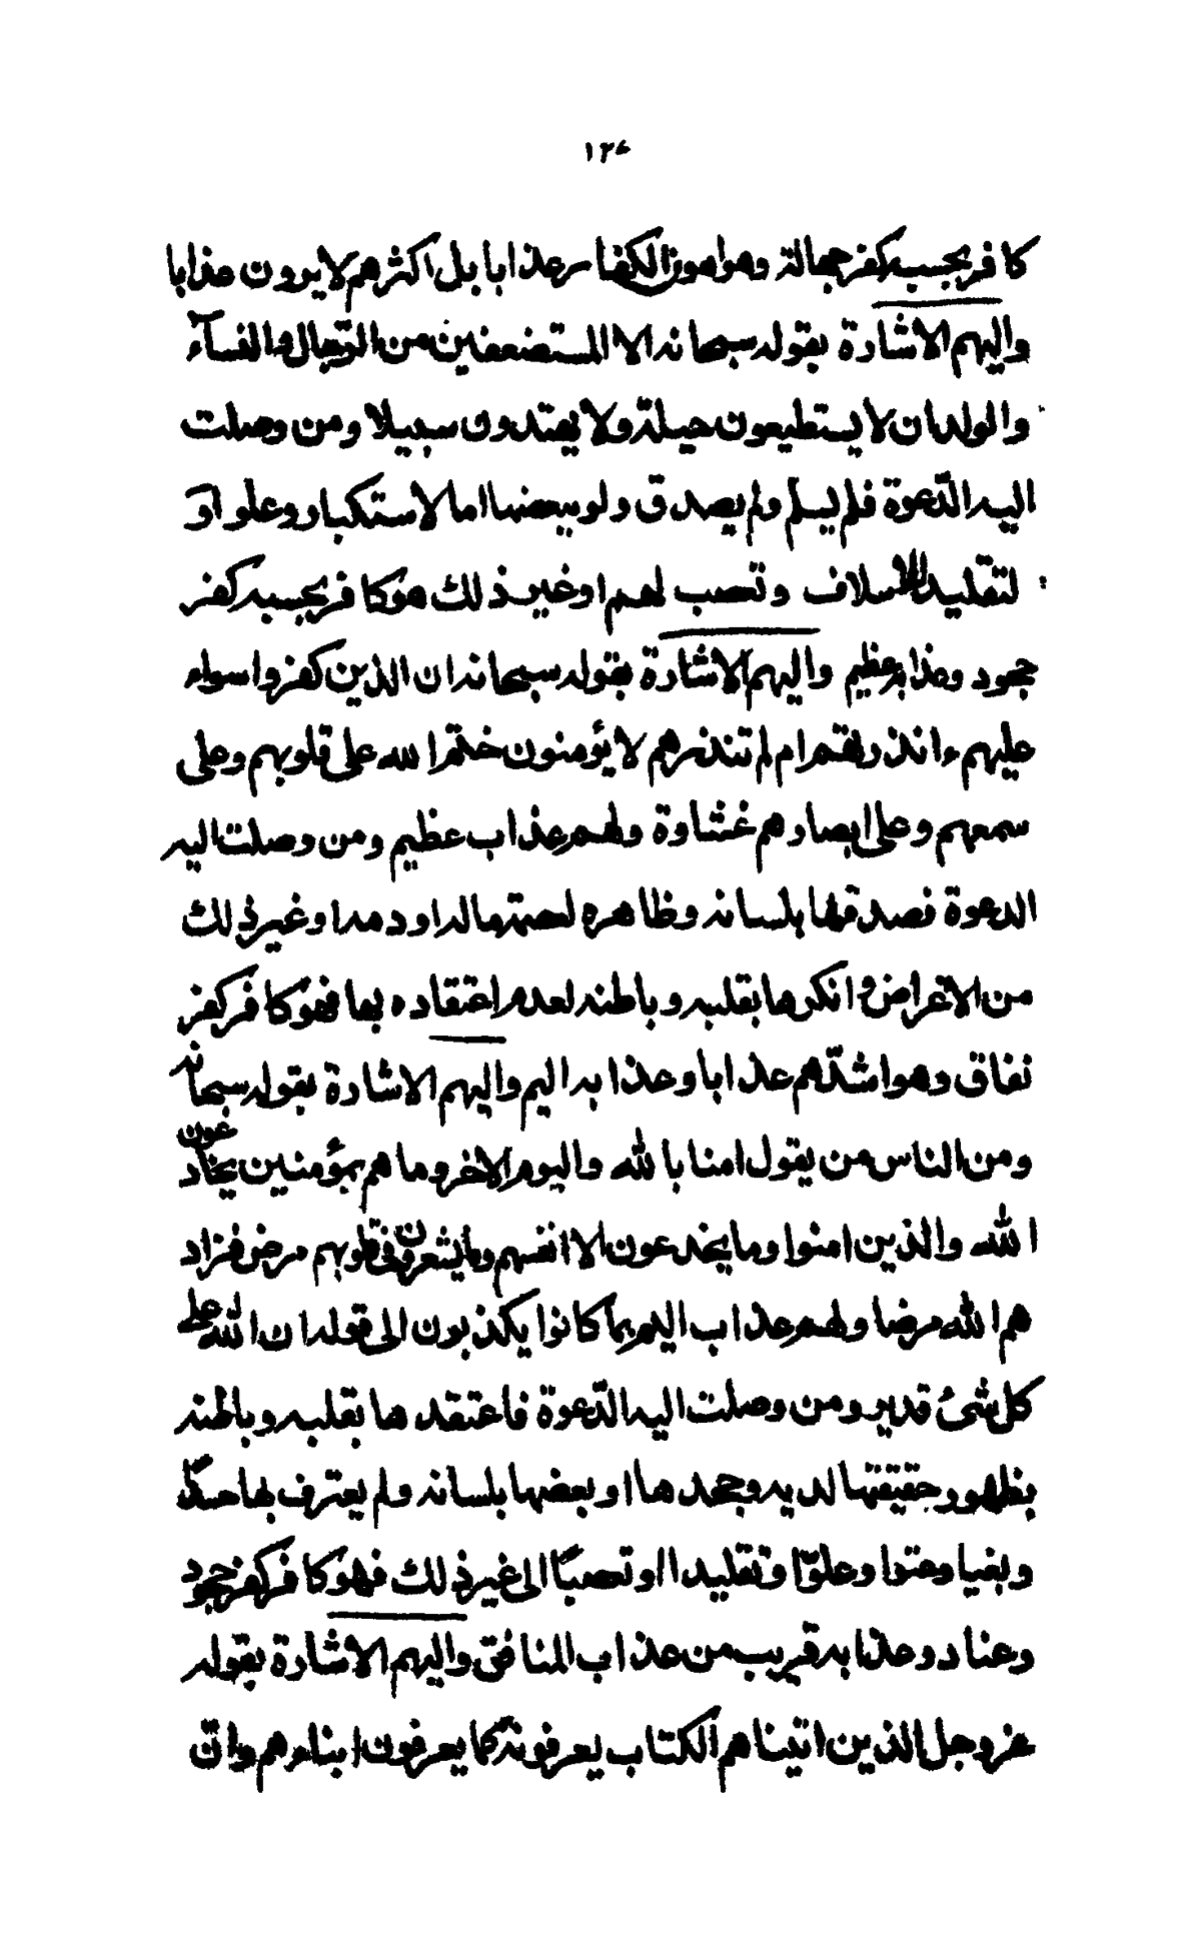 ١٢٤
كافر بحسبه كفر جهالة وهو اهون الكفار عذابا بل اكثرهم لا يرون عذابا
واليهم الاشارة بقوله سبحانه الا المستضعفين من الرّجال والنسآء
والولدان لا يستطيعون حيلة ولا يهتدون سبيلا ومن وصلت
اليه الدّعوة فلم يسلم ولم يصدق ولو ببعضها اما لاستكبار وعلو او
لتقليد الاسلاف وتعصب لهم او غير ذلك هو كافر بحسبه كفر
جحود وعذابه عظيم واليهم الاشارة بقوله سبحانه ان الذين كفروا سواء
عليهم ءانذرتهم ام لم تنذرهم لا يؤمنون ختم الله على قلوبهم وعلى
سمعهم وعلى ابصارهم غشاوة ولهم عذاب عظيم ومن وصلت اليه
الدعوة فصدقها بلسانه وظاهره لعصمة ماله او دمه او غير ذلك
من الاغراض وانكرها بقلبه وباطنه لعدم اعتقاده بها فهو كافر كفر
نفاق وهو اشدّهم عذابا وعذابه اليم واليهم الاشارة بقوله سبحانه
ومن الناس من يقول امنا بالله واليوم الاخر وما هم بمؤمنين يخادعون
الله والذين امنوا وما يخدعون الا انفسهم وما يشعرون في قلوبهم مرض فزاد
هم الله مرضا ولهم عذاب اليم بما كانوا يكذبون الى قوله ان الله على
كل شئ قدير ومن وصلت اليه الدّعوة فاعتقدها بقلبه وباطنه
بظهور حقيقتها لديه وجحدها او بعضها بلسانه ولم يعترف بها حسدًا
وبغيا وعتوا وعلوّا وتقليدا او تعصبًا الى غير ذلك فهو كافر كفر جحود
وعناد وعذابه قريب من عذاب المنافق واليهم الاشارة بقوله
عز وجل الذين اتيناهم الكتاب يعرفونه كما يعرفون ابناءهم وان